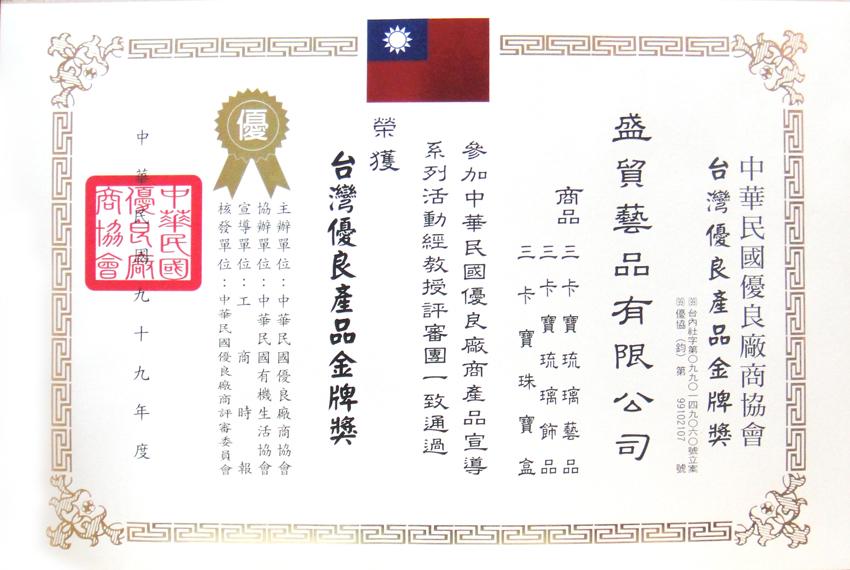 中華民國優良廠商協會
台灣優良產品金牌獎
㊝台內社字第〇九九〇一四九〇六〇號立案
優協（鈞）第 99102107 號
盛貿藝品有限公司
商品 三卡寶琉璃藝品
三卡寶琉璃飾品
三卡寶珠寶盒
參加中華民國優良廠商產品宣導
系列活動經教授評審團一致通過
榮獲
台灣優良產品金牌獎
優
主辦單位：中華民國優良廠商協會
協辦單位：中華民國有機生活協會
宣導單位：工商時報
核發單位：中華民國優良廠商評審委員會
中華民國九十九年度
中華民國
優良廠
商協會